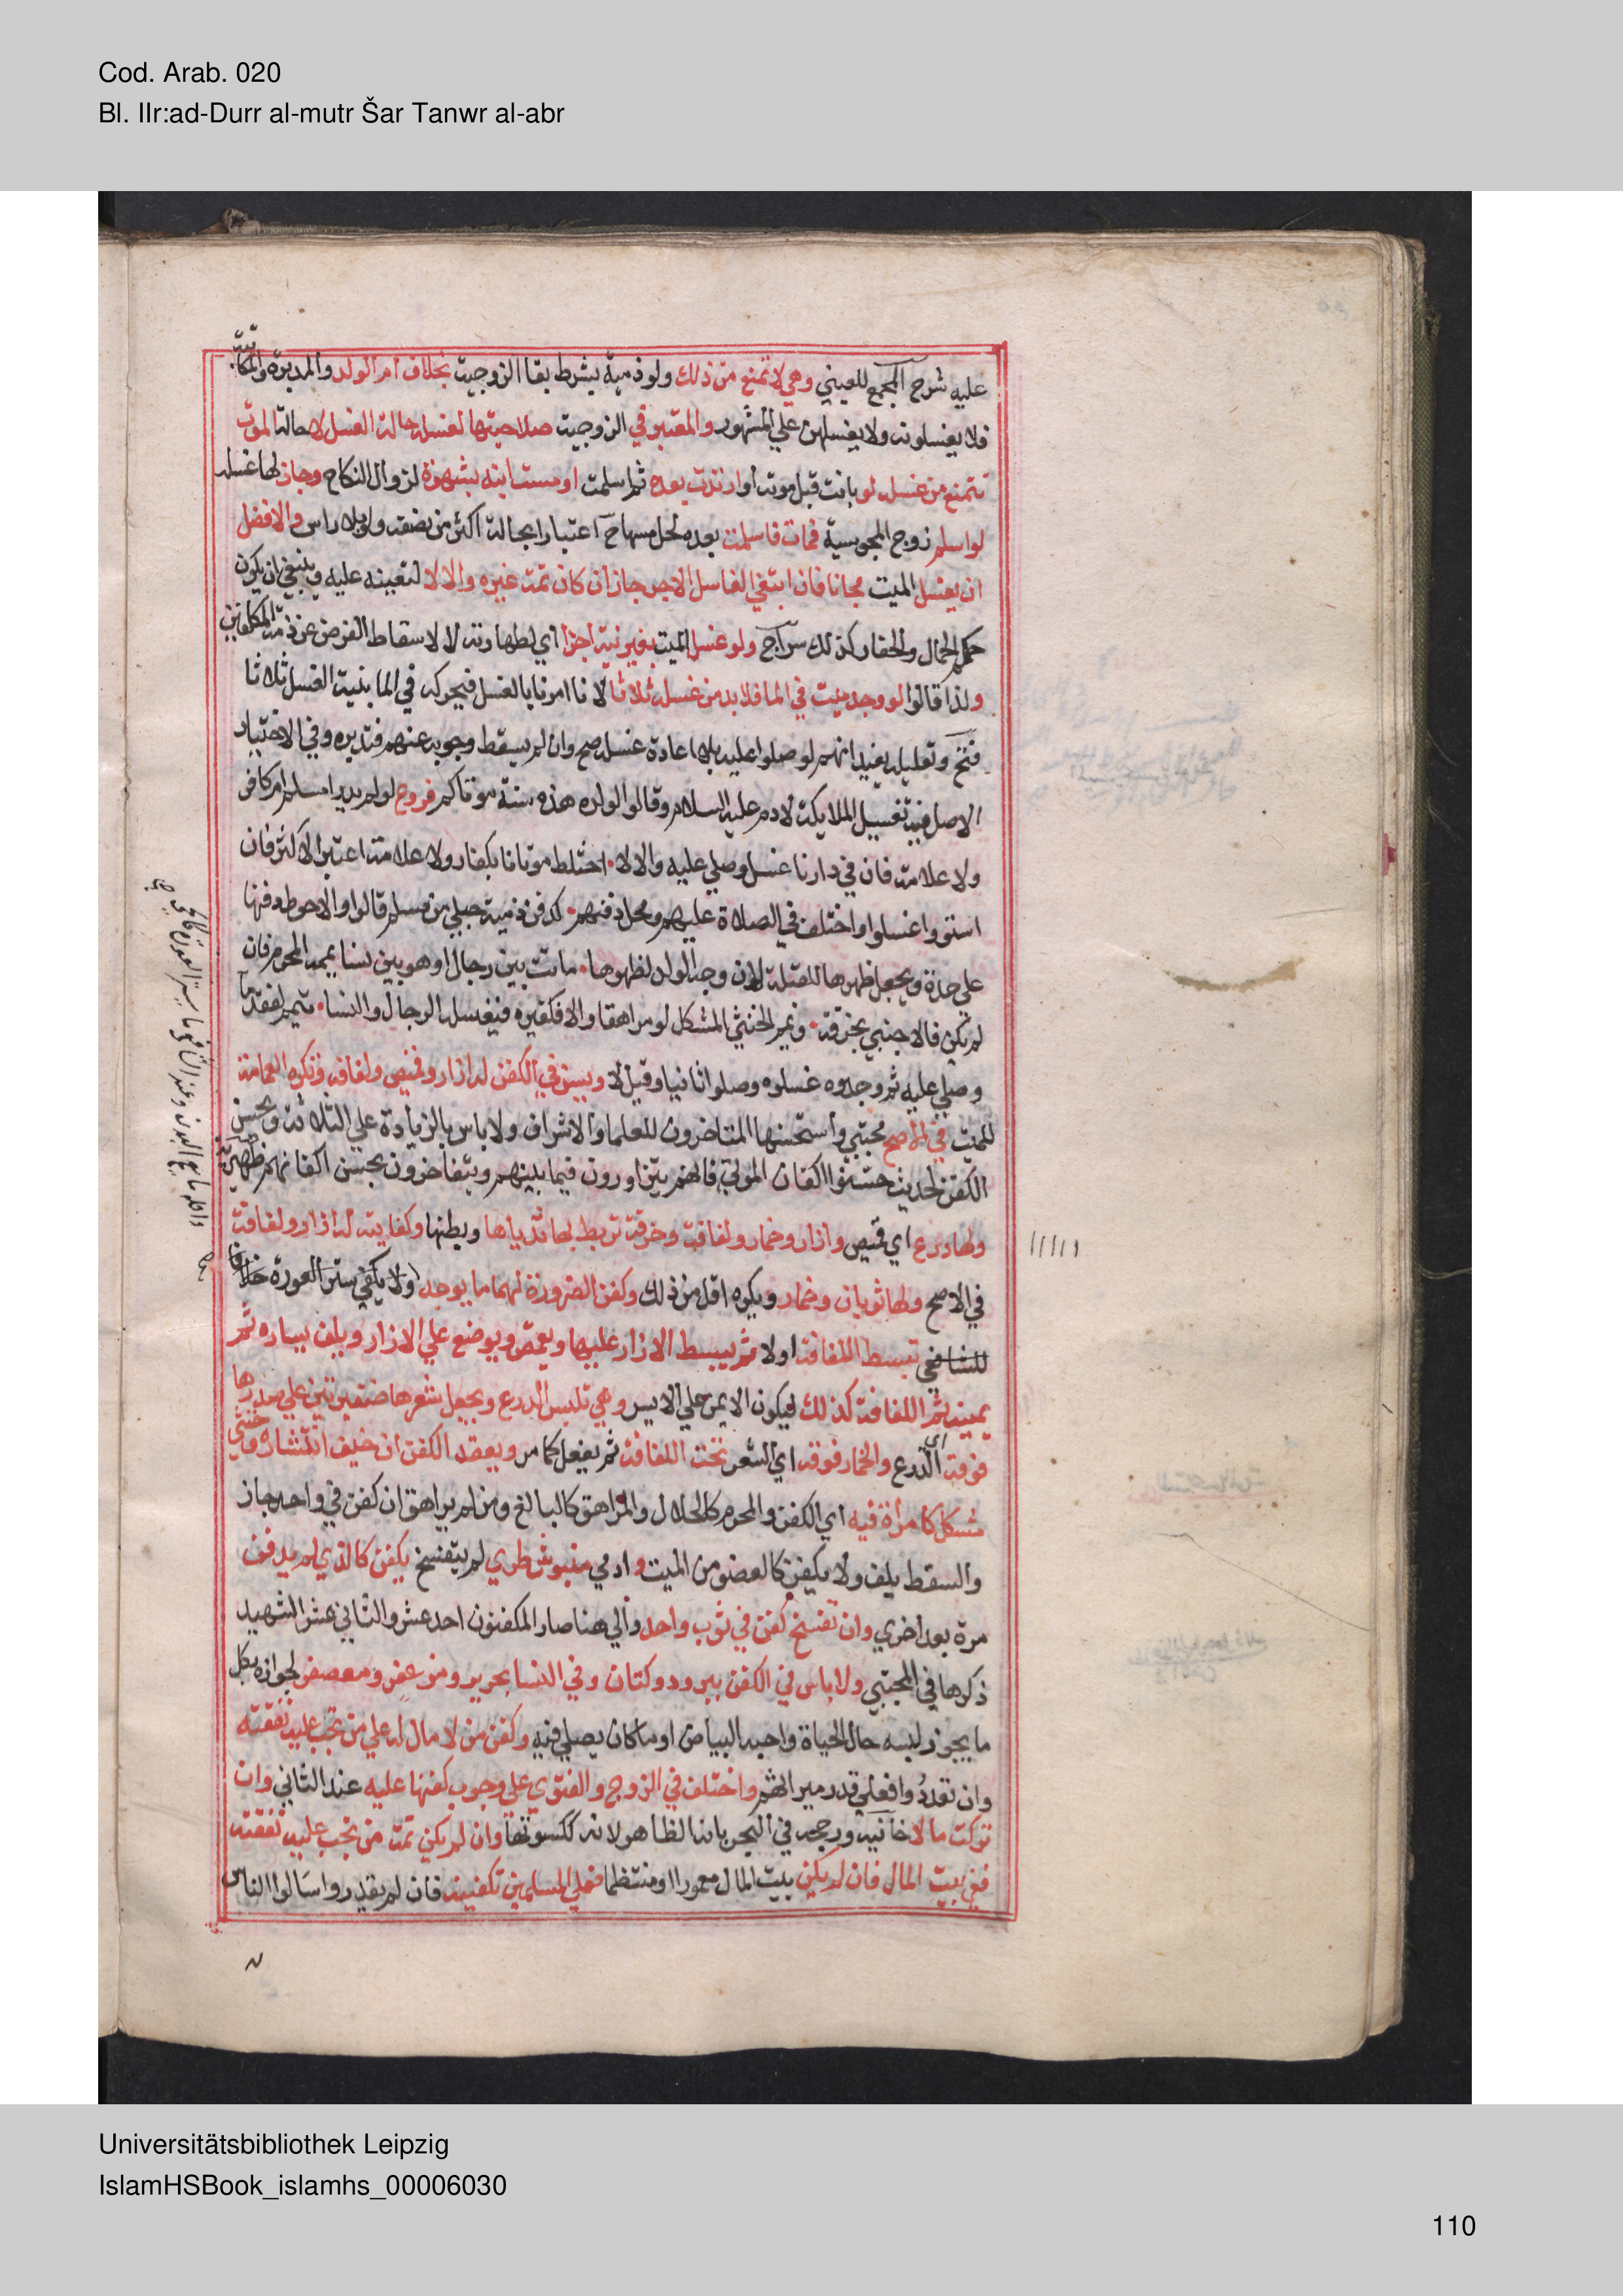 Cod. Arab. 020
Bl. IIr:ad-Durr al-mutr Šar Tanwr al-abr
عليه شرح المجمع للعيني وهي لا تمنع من ذلك ولو ذمية بشرط بقا الزوجيت بخلاف ام الولد والمدبرة والمكاتبة
فلا يغسلونه ولا يغسلهن علي المشهور والمعتبر في الزوجيت صلاحيتها لغسله حالة الغسل لا حالة الموت
تتمنع من غسله لو بانت قبل موته او ارتدت بعده ثم اسلمت او مست ابنه بشهوة لزوال النكاح وجاز لها غسله
لو اسلم زوج المجوسية فمات فاسلمت بعده لحل مسها ح اعتبارا بحالة اكثر من نصفه ولو بلا راس والافضل
ان يغسل الميت مجانا فان ابتغي الغاسل الاجر جاز ان كان ثمت غيره والا لا لتعينه عليه وينبغي ان يكون
حكم الحمال والحفار كذلك سراج ولو غسل الميت بغير نية اجزا اي لطهارته لا لاسقاط الفرض عن ذمة المكلفين
ولذا قالوا لو وجد ميت في الما فلا بد من غسله ثلاثا لانا امرنا بالغسل فيحركه في الما بنيت الغسل ثلاثا
فتح وتعليله يفيد انهم لو صلوا عليه بلا اعادة غسله صح وان لم يسقط وجوبه عنهم فتدبره وفي الاختيار
الاصل فيه تغسيل الملايكة لادم عليه السلام وقالوا لولده هذه سنة موتاكم فروع لو لم يدر امسلم ام كافر
ولا علامة فان في دارنا غسل وصلي عليه والا لا اختلط موتانا بكفار ولا علامت اعتبر الاكثر فان
استووا غسلوا واختلف في الصلاة عليهم ومحل دفنهم كدفن ذمية حبلي من مسلم قالوا والاحوط دفنها
علي حدة ويجعل ظهرها للقبلة لان وجه الولد لظهرها ماتت بين رجال او هو بين نسا يممه المحرم فان
لم يكن فالاجنبي بخرقة ويمم الخنثي المشكل لو مراهقا والا فكغيره فيغسله الرجال والنسا يتم لفقد ما
وصلي عليه ثم وجدوه غسلوه وصلوا ثانيا وقيل لا ويسن في الكفن له ازار وقميص ولفافه وتكره العمامة
للميت في الاصح مجتبي واستحسنها المتاخرون للعلما والاشراف ولا باس بالزيادة علي الثلاثة ويحسن
الكفن لحديث حسنوا اكفان الموتي فانهم يتزاورون فيما بينهم ويتفاخرون بحسن اكفانهم ظهيرية
ولها درع اي قميص وازار وخمار ولفافة وخرقة تربط بها ثدياها وبطنها وكفايته له ازار ولفافة
في الاصح ولها ثوبان وخمار ويكره اقل من ذلك وكفن الضرورة لهما ما يوجد ولا يكفي ستر العورة خلافا
للشافعي تبسط اللفافة اولا ثم يبسط الازار عليها ويقمص ويوضع علي الازار ويلف يساره ثم
يمينه ثم اللفافة كذلك ليكون الايمن علي الايسر وهي تلبس الدرع ويجعل شعرها ضفيرتين علي صدرها
فوقه اي الدرع والخمار فوقه اي الشعر تحت اللفافة ثم يفعل كما مر ويعقد الكفن ان خيف انتشاره وخنثي
مشكل كامراة فيه اي الكفن والمحرم كالحلال والمراهق كالبالغ ومن لم يراهق ان كفن في واحد جاز
والسقط يلف ولا يكفن كالعضو من الميت وادمي منبوش طري لم يتفسخ يكفن كالذي لم يدفن
مرة بعد اخري وان تفسخ كفن في ثوب واحد والي هنا صار المكفنون احد عشر والثاني عشر الشهيد
ذكرها في المجتبي ولا باس في الكفن ببرود وكتان وفي النسا بحرير ومزعفر ومعصفر لجوازه بكل
ما يجوز لبسه حال الحياة واحبه البياض او ما كان يصلي فيه وكفن من لا مال له علي من تجب عليه نفقته
وان تعددوا فعلي قدر ميراثهم واختلف في الزوج والفتوي علي وجوب كفنها عليه عند الثاني وان
تركت مالا خانيه ورجحه في البحر بانه الظاهر لانه ككسوتها وان لم يكن ثمت من تجب عليه نفقته
ففي بيت المال فان لم يكن بيت المال معمورا او منتظما فعلي المسلمين تكفينه فان لم يقدروا سالوا الناس
Universitätsbibliothek Leipzig
IslamHSBook_islamhs_00006030
110